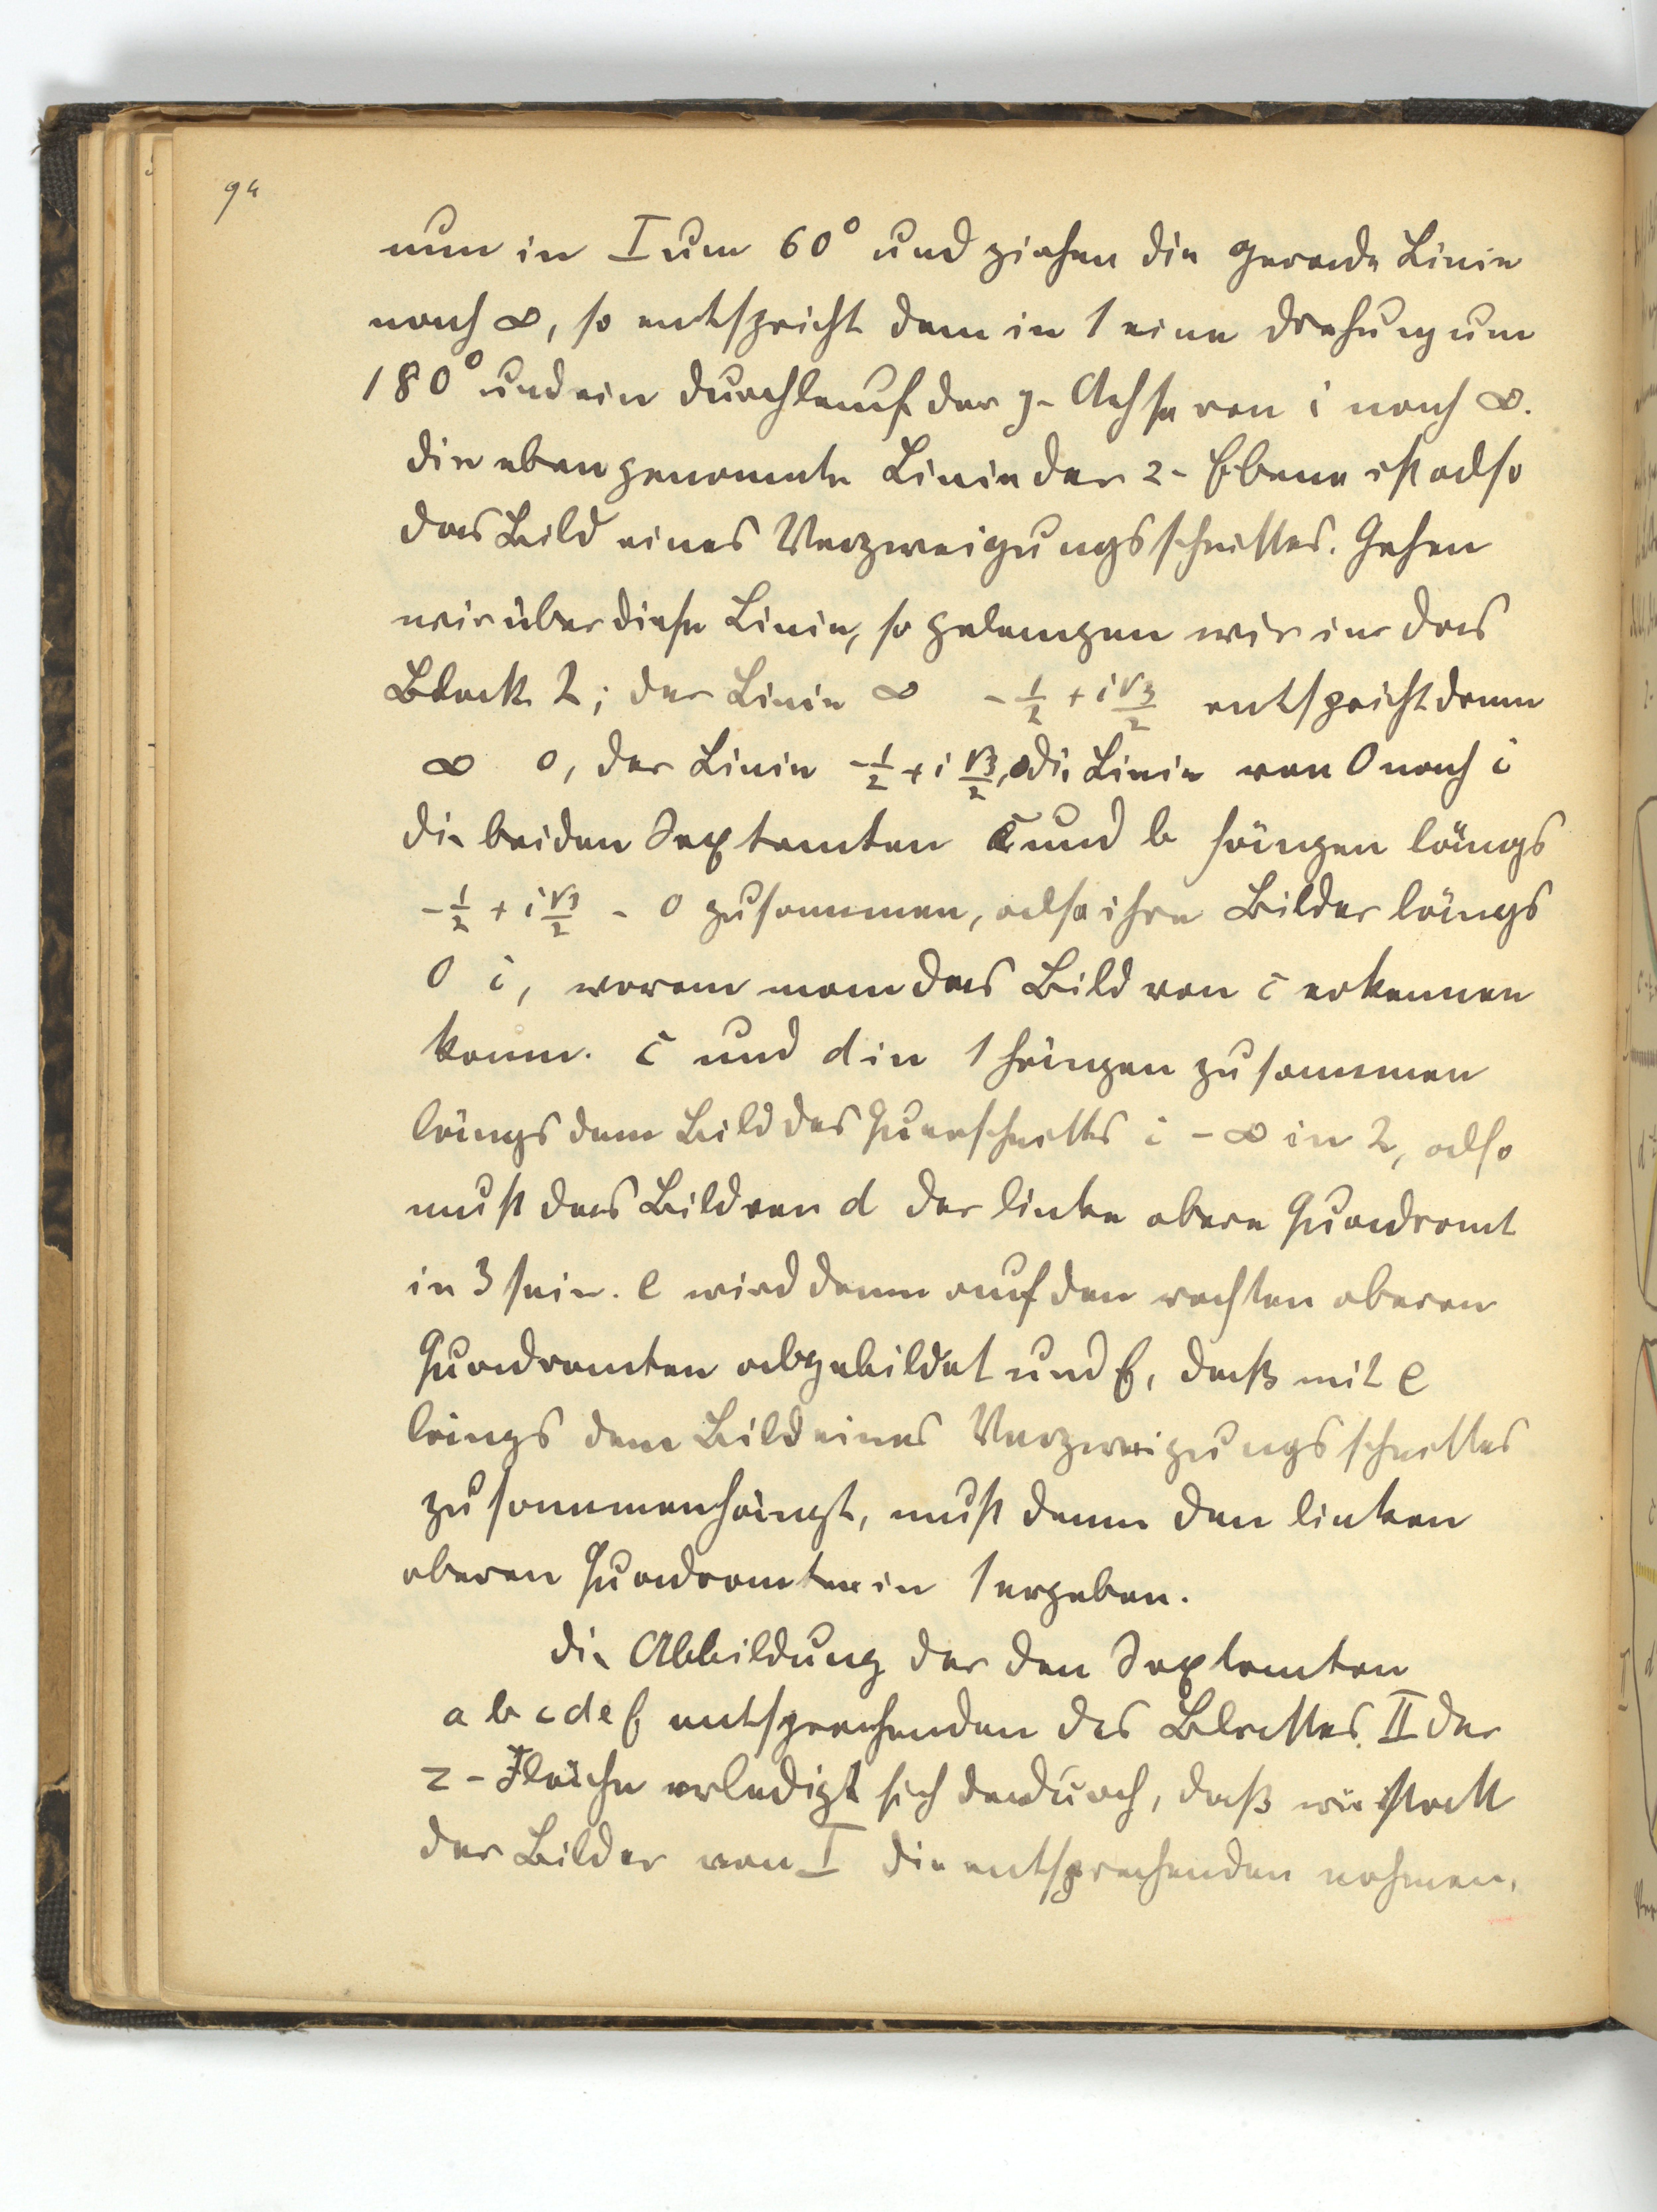 94
nun in I um 60° und ziehen die gerade Linie
nach ∞, so entspricht dem in 1 eine Drehung um
180° und ein Durchlauf der y-Achse von i nach ∞.
Die eben genannte Linie der z-Ebene ist also
das Bild eines Verzweigungsschnittes. Gehen
wir über diese Linie, so gelangen wir in das
Blatt 2; der Linie ∞ -1/2 + i√3/2 entspricht dann
∞ 0, der Linie -1/2 + i √3/2, 0 die Linie von 0 nach i
die beiden Sextanten c und b hängen längs
-1/2 + i √3/2 - 0 zusammen, also ihre Bilder längs
0 i, woran man das Bild von c erkennen
kann. c und d in 1 hängen zusammen
längs dem Bild des Querschnitts i - ∞ in 2, also
muß das Bild von d der linke obere Quadrant
in 3 sein. e wird dann auf den rechten oberen
Quadranten abgebildet und f, daß mit e
längs dem Bild eines Verzweigungsschnittes
zusammenhängt, muß dann den linken
oberen Quadranten in 1 ergeben.
Die Abbildung der den Sextanten
a b c d e f entsprechenden des Blattes II der
z-Fläche erledigt sich dadurch, daß wir statt
der Bilder von I die entsprechenden nehmen,